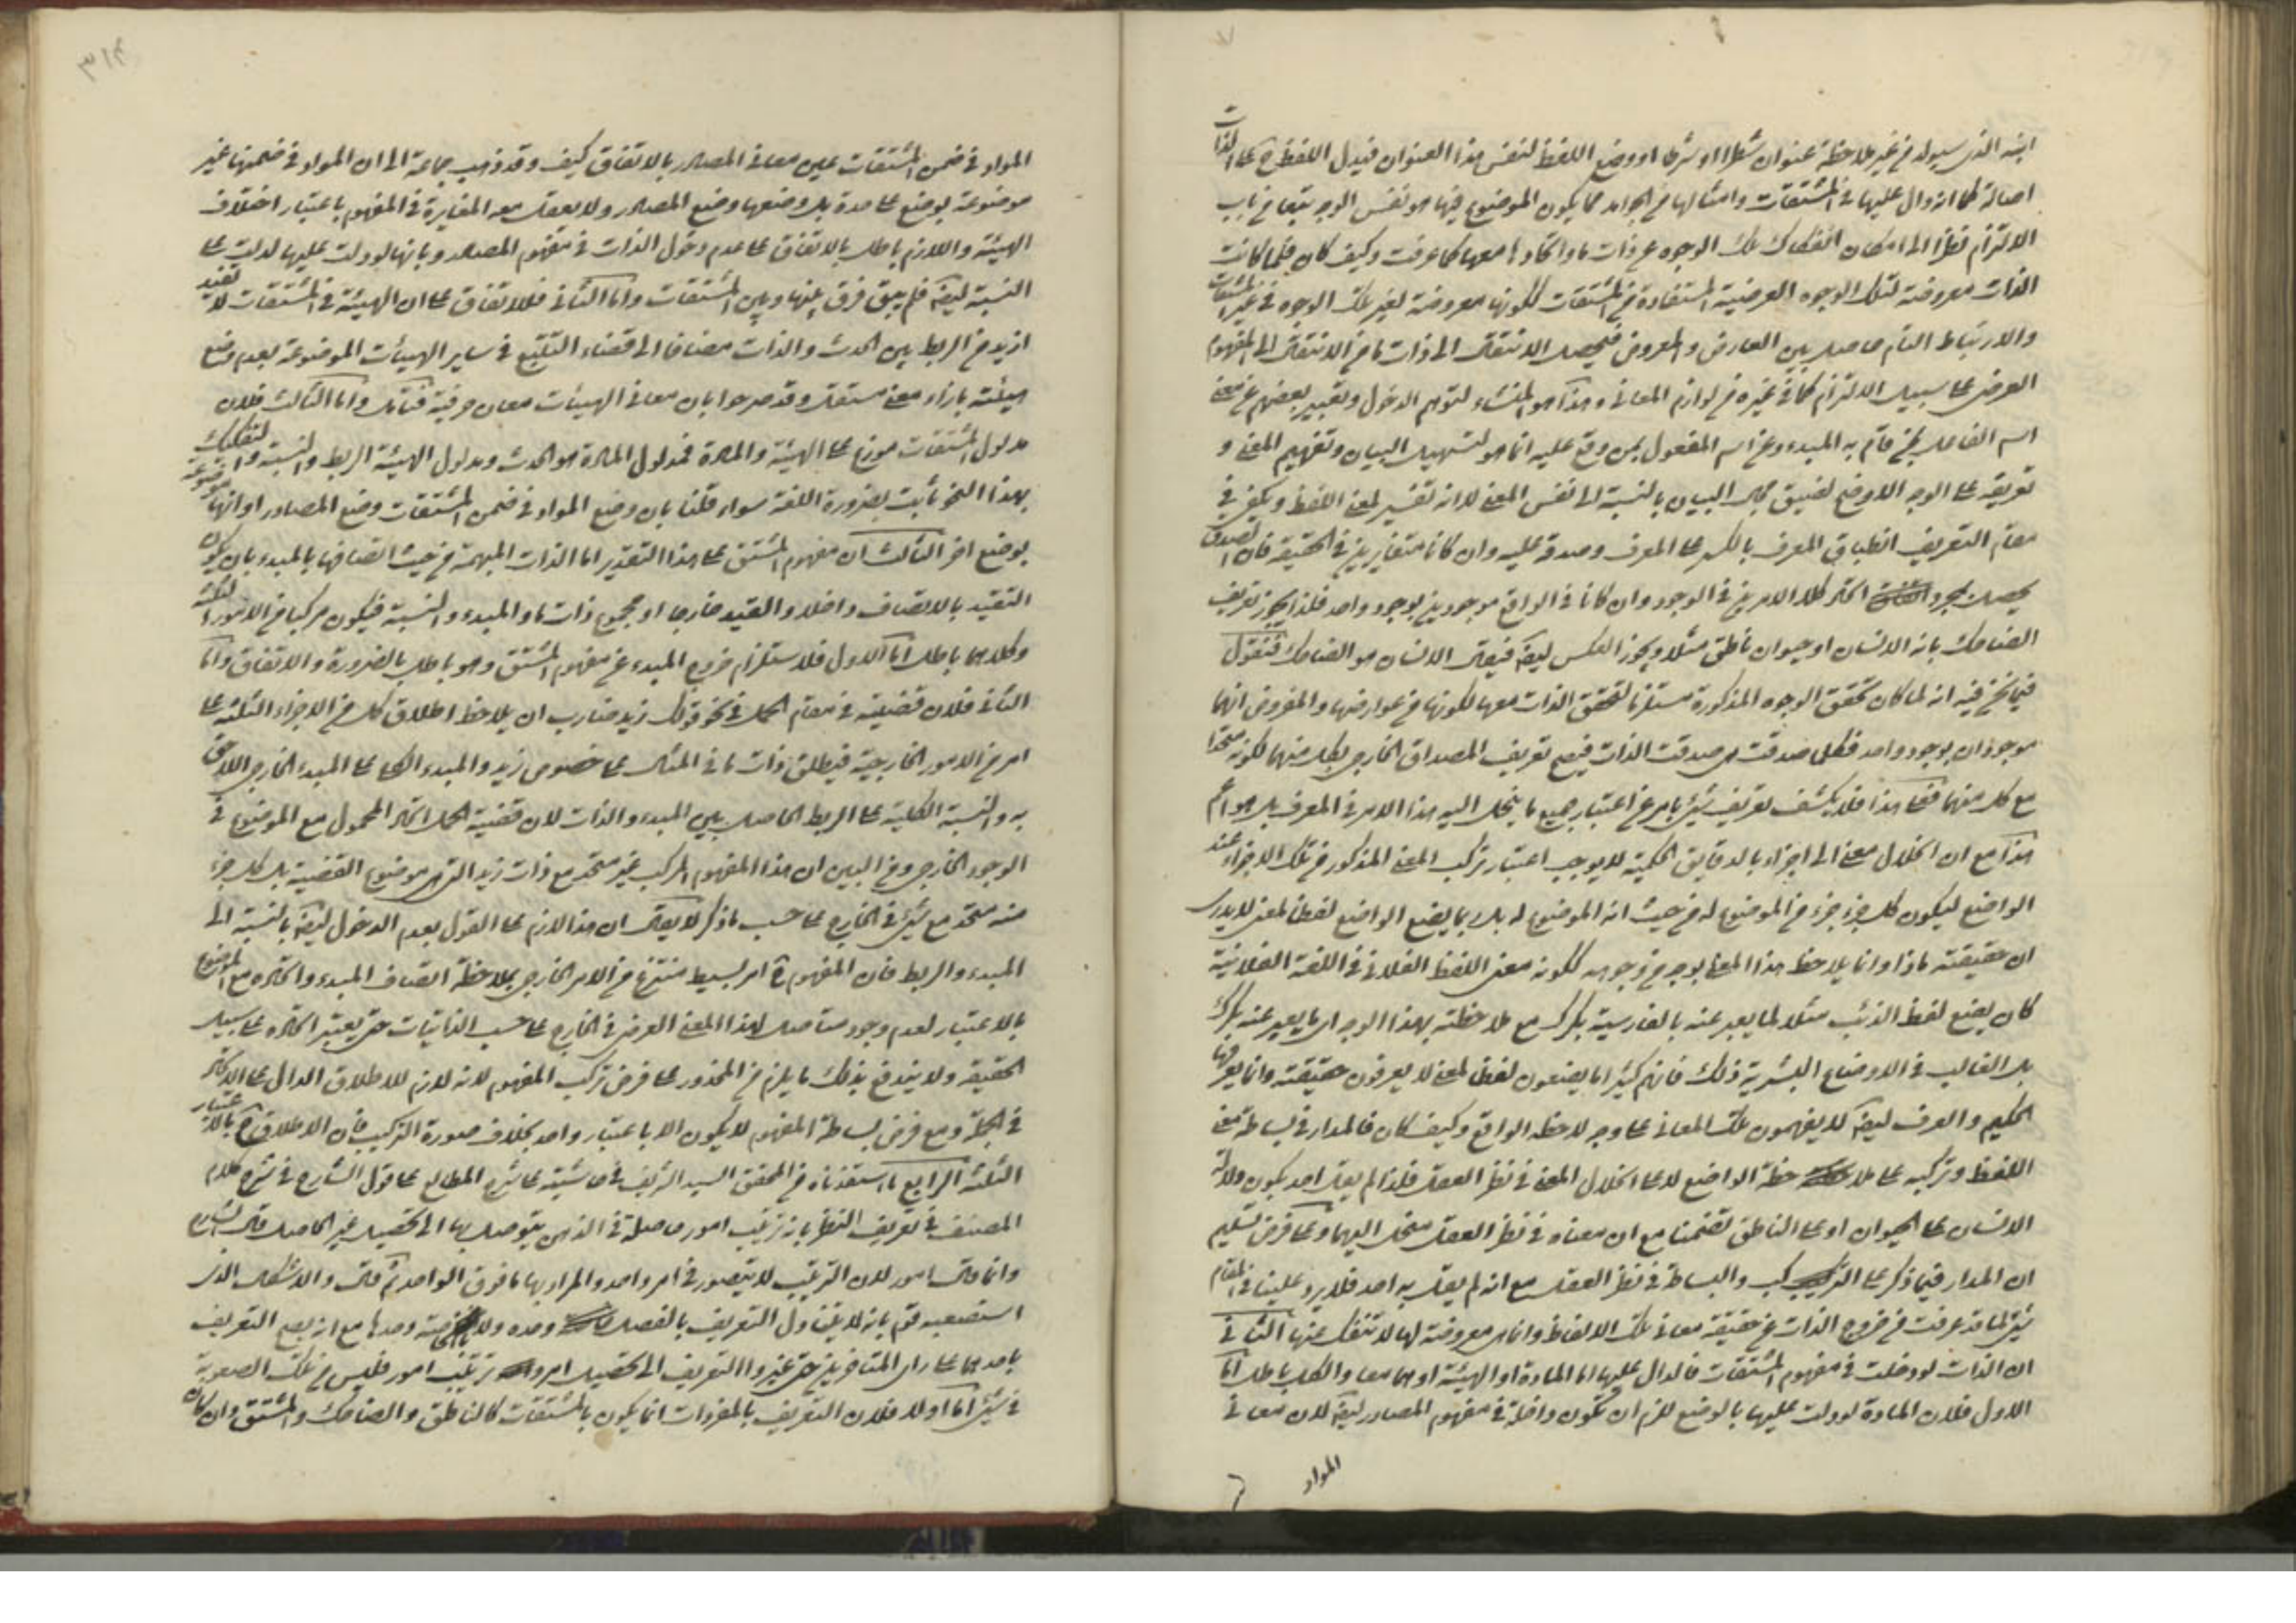 ابنه الذى سيولد من غير ملاحظة عنوان شطرا او شرطا او وضع اللفظ لنفس هذا العنوان فيدل اللفظ ح على الذات
اصالة كما ان دال عليها فى المشتقات وامثالها من الجوامد مما يكون الموضوع فيها هو نفس الوجه تبعا من باب
الالتزام نظرا الى امكان انفكاك تلك الوجوه عن ذات ما واتحادها معها كما عرفت وكيف كان فلما كانت
الذات معروضة لتلك الوجوه العرضية المستفادة من المشتقات ككونها معروضة لغير تلك الوجوه فى غير المشتقات
والارتباط التام حاصل بين العارض والمعروض فيحصل الانتقال الى ذات ما من الانتقال الى المفهوم
العرضى على سبيل الالتزام كما فى غيره من لوازم المعانى وهذا هو المنشاء لتوهم الدخول وتعبير بعضهم عن معنى
اسم الفاعل بمن قام به المبدء وعن اسم المفعول بمن وقع عليه انما هو لتسهيل البيان وتفهيم المعنى و
تعريفه على الوجه الاوضح لضيق مجال البيان بالنسبة الى نفس المعنى لا انه تفسير لمعنى اللفظ ويكفى فى
مقام التعريف انطباق المعرف بالكسر على المعرف وصدقه عليه وان كانا متغايرين فى الحقيقة فان الصدق
يحصل بمجرد اتحاد كلا الامرين فى الوجود وان كانا فى الواقع موجودين بوجود واحد فلذا يجوز تعريف
الضاحك بانه الانسان او حيوان ناطق مثلا ويجوز العكس ايضا فيقال الانسان هو الضاحك فنقول
فيما نحن فيه انه لما كان تحقق الوجوه المذكورة مستلزما لتحقق الذات معها لكونها من عوارضها والمفروض انهما
موجودان بوجود واحد فكلما صدقت هى صدقت الذات فيصح تعريف المصداق الخارجى بكل منهما لكونه متحدا
مع كل منهما فعلى هذا فلا يكشف تعريف شئ بامر عن اعتبار جميع ما ينحل اليه هذا الامر فى المعرف بل هو اعم
هذا مع ان انحلال معنى الى اجزاء بالدقايق الحكمية لا يوجب اعتبار تركب المعنى المذكور من تلك الاجزاء عند
الواضع ليكون كل جزء جزء من الموضوع له من حيث انه الموضوع له بل ربما يضع الواضع لفظا لمعنى لا يدرى
ان حقيقته ماذا وانما يلاحظ هذا المعنى بوجه من وجوهه ككونه معنى اللفظ الفلانى فى اللغة الفلانية
كان يضع لفظ الذئب مثلا لما يعبر عنه بالفارسية بكرك مع ملاحظته بهذا الوجه اى ما يعبر عنه بكرك
بل الغالب فى الاوضاع البشرية ذلك فانهم كثيرا ما يضعون لفظا لمعنى لا يعرفون حقيقته وانما يعرفها
الحكيم والعرف ايضا لا يفهمون تلك المعانى على وجه لاحظه الواقع وكيف كان فالمدار فى بساطة معنى
اللفظ وتركبه على ملاحظة الواضع لا على انحلال المعنى فى نظر العقل فلذا لم يقل احد بكون دلالة
الانسان على الحيوان او على الناطق تضمنا مع ان معناه فى نظر العقل منحل اليهما وعلى فرض تسليم
ان المدار فيما ذكر على التركيب والبساطة فى نظر العقل مع انه لم يقل به احد فلا يرد علينا فى المقام
شئ لما قد عرفت من خروج الذات عن حقيقة معانى تلك الالفاظ وانما هى معروضة لها لا تنفك عنها الثانى
ان الذات لو دخلت فى مفهوم المشتقات فالدال عليها اما المادة او الهيئة او هما معا والكل باطل اما
الاول فلان المادة لو دلت عليها بالوضع للزم ان تكون داخلة فى مفهوم المصادر ايضا لان معانى
المواد
المواد فى ضمن المشتقات عين معانى المصادر بالاتفاق كيف وقد ذهب جماعة الى ان المواد فى ضمنها غير
موضوعة بوضع على حدة بل وضعها وضع المصادر ولا يعقل معه المغايرة فى المفهوم باعتبار اختلاف
الهيئة واللازم باطل بالاتفاق على عدم دخول الذات فى مفهوم المصادر وبانها لو دلت عليها لدلت على
النسبة ايضا فلم يبق فرق بينها وبين المشتقات واما الثانى فللاتفاق على ان الهيئة فى المشتقات لا تفيد
ازيد من الربط بين الحدث والذات مضافا الى قضاء التتبع فى ساير الهيئات الموضوعة بعدم وضع
هيئة بازاء معنى مستقل وقد صرحوا بان معانى الهيئات معان حرفية فتامل واما الثالث فلان
مدلول المشتقات موزع على الهيئة والمادة فمدلول المادة هو الحدث ومدلول الهيئة الربط والنسبة والتفكيك
بهذا النحو ثابت بضرورة اللغة سواء قلنا بان وضع المواد فى ضمن المشتقات وضع المصادر او انها موضوعة
بوضع اخر الثالث ان مفهوم المشتق على هذا التقدير اما الذات المبهمة من حيث اتصافها بالمبدء بان يكون
التقيد بالاتصاف داخلا والقيد خارجا او مجموع ذات ما والمبدء والنسبة فيكون مركبا من الامور الثلثة
وكلاهما باطل اما الاول فلاستلزام خروج المبدء عن مفهوم المشتق وهو باطل بالضرورة والاتفاق واما
الثانى فلان قضيته فى مقام الحمل فى نحو قولك زيد ضارب ان يلاحظ اطلاق كل من الاجزاء الثلثة على
امر من الامور الخارجية فيطلق ذات ما فى المثال على خصوص زيد والمبدء الكلى على المبدء الخارجى اللاحق
به والنسبة الكلية على الربط الحاصل بين المبدء والذات لان قضية الحمل اتحاد المحمول مع الموضوع فى
الوجود الخارجى ومن البين ان هذا المفهوم المركب غير متحد مع ذات زيد التى هى موضوع القضية بل كل جزء
منه متحد مع شئ فى الخارج على حسب ما ذكر لا يقال ان هذا لازم على القول بعدم الدخول ايضا بالنسبة الى
المبدء والربط فان المفهوم ح امر بسيط منتزع من الامر الخارجى بملاحظة اتصاف المبدء واتحاده مع الموضوع
بالاعتبار لعدم وجود متاصل لهذا المعنى العرضى فى الخارج على حسب الذاتيات حتى يعتبر اتحاده على سبيل
الحقيقة ولا يندفع بذلك ما يلزم من المحذور على فرض تركب المفهوم لانه لازم للاطلاق الدال على الاتحاد
فى الجملة ومع فرض بساطة المفهوم لا يكون الا باعتبار واحد بخلاف صورة التركيب فان الاطلاق ح بالاعتبار
الثلثة الرابع ما استفدناه من المحقق السيد الشريف فى حاشيته على شرح المطالع على قول الشارح فى شرح كلام
المصنف فى تعريف النظر بانه ترتيب امور حاصلة فى الذهن يتوصل بها الى تحصيل غير الحاصل قال الشارح
وانما قال امور لان الترتيب لا يتصور فى امر واحد والمراد بها ما فوق الواحد ثم قال والاشكال الذى
استصعبه قوم بانه لا يتناول التعريف بالفصل وحده ولا بالخاصة وحدها مع انه يصح التعريف
باحدهما على راى المتاخرين حتى غيروا التعريف الى تحصيل امر او ترتيب امور فليس من تلك الصعوبة
فى شئ اما اولا فلان التعريف بالمفردات انما يكون بالمشتقات كالناطق والضاحك والمشتق وان كان